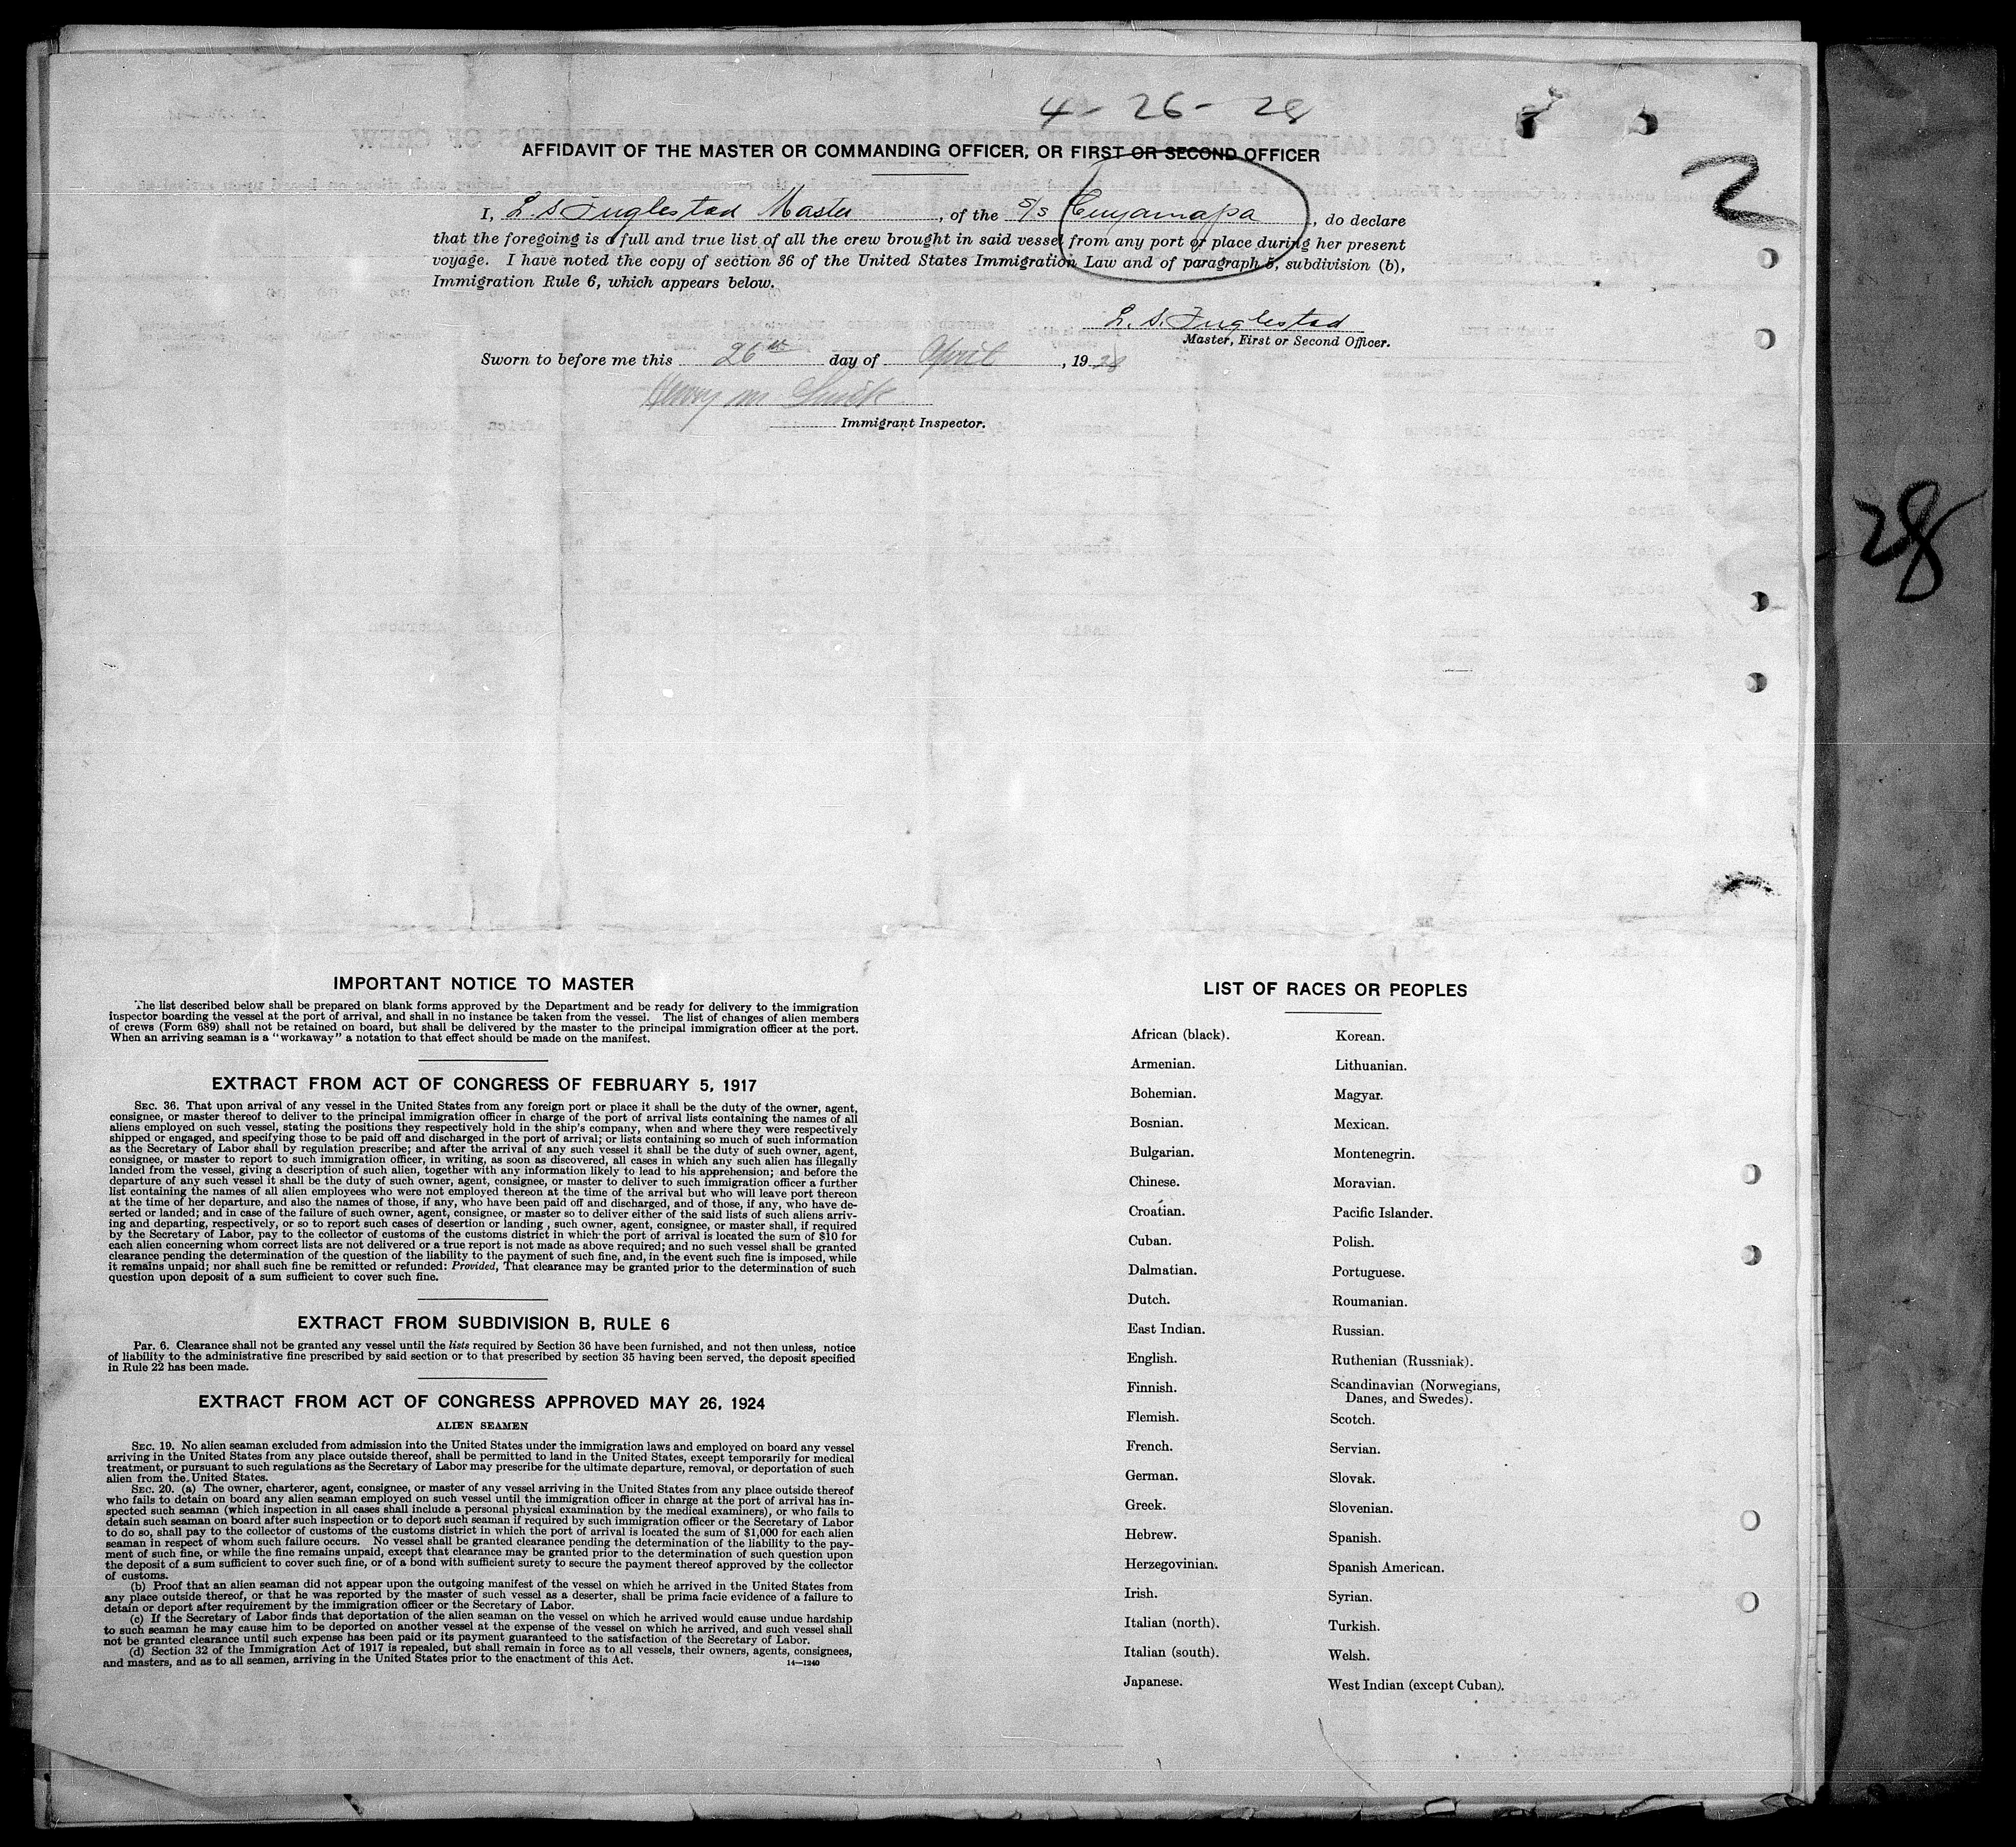 4-26-28
AFFIDAVIT OF THE MASTER OR COMMANDING OFFICER, OR FIRST OR SECOND OFFICER
2
I, L. S. Inglestad Master, of the S/S Cuyamapa, do declare
that the foregoing is a full and true list of all the crew brought in said vessel from any port or place during her present
voyage. I have noted the copy of section 36 of the United States Immigration Law and of paragraph 5, subdivision (b),
Immigration Rule 6, which appears below.
L. S. Inglestad
Master, First or Second Officer.
Sworn to before me this 26th day of April, 1928
Henry m
Immigrant Inspector.
28
IMPORTANT NOTICE TO MASTER
The list described below shall be prepared on blank forms approved by the Department and be ready for delivery to the immigration
inspector boarding the vessel at the port of arrival, and shall in no instance be taken from the vessel. The list of changes of alien members
of crews (Form 689) shall not be retained on board, but shall be delivered by the master to the principal immigration officer at the port.
When an arriving seaman is a "workaway" a notation to that effect should be made on the manifest.
EXTRACT FROM ACT OF CONGRESS OF FEBRUARY 5, 1917
SEC. 36. That upon arrival of any vessel in the United States from any foreign port or place it shall be the duty of the owner, agent,
consignee, or master thereof to deliver to the principal immigration officer in charge of the port of arrival lists containing the names of all
aliens employed on such vessel, stating the positions they respectively hold in the ship's company, when and where they were respectively
shipped or engaged, and specifying those to be paid off and discharged in the port of arrival; or lists containing so much of such information
as the Secretary of Labor shall by regulation prescribe; and after the arrival of any such vessel it shall be the duty of such owner, agent,
consignee, or master to report to such immigration officer, in writing, as soon as discovered, all cases in which any such alien has illegally
landed from the vessel, giving a description of such alien, together with any information likely to lead to his apprehension; and before the
departure of any such vessel it shall be the duty of such owner, agent, consignee, or master to deliver to such immigration officer a further
list containing the names of all alien employees who were not employed thereon at the time of the arrival but who will leave port thereon
at the time of her departure, and also the names of those, if any, who have been paid off and discharged, and of those, if any, who have de-
serted or landed; and in case of the failure of such owner, agent, consignee, or master so to deliver either of the said lists of such aliens arriv-
ing and departing, respectively, or so to report such cases of desertion or landing, such owner, agent, consignee, or master shall, if required
by the Secretary of Labor, pay to the collector of customs of the customs district in which the port of arrival is located the sum of $10 for
each alien concerning whom correct lists are not delivered or a true report is not made as above required; and no such vessel shall be granted
clearance pending the determination of the question of the liability to the payment of such fine, and, in the event such fine is imposed, while
it remains unpaid; nor shall such fine be remitted or refunded: Provided, That clearance may be granted prior to the determination of such
question upon deposit of a sum sufficient to cover such fine.
EXTRACT FROM SUBDIVISION B, RULE 6
Par. 6. Clearance shall not be granted any vessel until the lists required by Section 36 have been furnished, and not then unless, notice
of liability to the administrative fine prescribed by said section or to that prescribed by section 35 having been served, the deposit specified
in Rule 22 has been made.
EXTRACT FROM ACT OF CONGRESS APPROVED MAY 26, 1924
ALIEN SEAMEN
SEC. 19. No alien seaman excluded from admission into the United States under the immigration laws and employed on board any vessel
arriving in the United States from any place outside thereof, shall be permitted to land in the United States, except temporarily for medical
treatment, or pursuant to such regulations as the Secretary of Labor may prescribe for the ultimate departure, removal, or deportation of such
alien from the United States.
SEC. 20. (a) The owner, charterer, agent, consignee, or master of any vessel arriving in the United States from any place outside thereof
who fails to detain on board any alien seaman employed on such vessel until the immigration officer in charge at the port of arrival has in-
spected such seaman (which inspection in all cases shall include a personal physical examination by the medical examiners), or who fails to
detain such seaman on board after such inspection or to deport such seaman if required by such immigration officer or the Secretary of Labor
to do so, shall pay to the collector of customs of the customs district in which the port of arrival is located the sum of $1,000 for each alien
seaman in respect of whom such failure occurs. No vessel shall be granted clearance pending the determination of the liability to the pay-
ment of such fine, or while the fine remains unpaid, except that clearance may be granted prior to the determination of such question upon
the deposit of a sum sufficient to cover such fine, or of a bond with sufficient surety to secure the payment thereof approved by the collector
of customs.
(b) Proof that an alien seaman did not appear upon the outgoing manifest of the vessel on which he arrived in the United States from
any place outside thereof, or that he was reported by the master of such vessel as a deserter, shall be prima facie evidence of a failure to
detain or deport after requirement by the immigration officer or the Secretary of Labor.
(c) If the Secretary of Labor finds that deportation of the alien seaman on the vessel on which he arrived would cause undue hardship
to such seaman he may cause him to be deported on another vessel at the expense of the vessel on which he arrived, and such vessel shall
not be granted clearance until such expense has been paid or its payment guaranteed to the satisfaction of the Secretary of Labor.
(d) Section 32 of the Immigration Act of 1917 is repealed, but shall remain in force as to all vessels, their owners, agents, consignees,
and masters, and as to all seamen, arriving in the United States prior to the enactment of this Act.
14—1240
LIST OF RACES OR PEOPLES
African (black). Korean.
Armenian. Lithuanian.
Bohemian. Magyar.
Bosnian. Mexican.
Bulgarian. Montenegrin.
Chinese. Moravian.
Croatian. Pacific Islander.
Cuban. Polish.
Dalmatian. Portuguese.
Dutch. Roumanian.
East Indian. Russian.
English. Ruthenian (Russniak).
Finnish. Scandinavian (Norwegians,
Danes, and Swedes).
Flemish. Scotch.
French. Servian.
German. Slovak.
Greek. Slovenian.
Hebrew. Spanish.
Herzegovinian. Spanish American.
Irish. Syrian.
Italian (north). Turkish.
Italian (south). Welsh.
Japanese. West Indian (except Cuban).